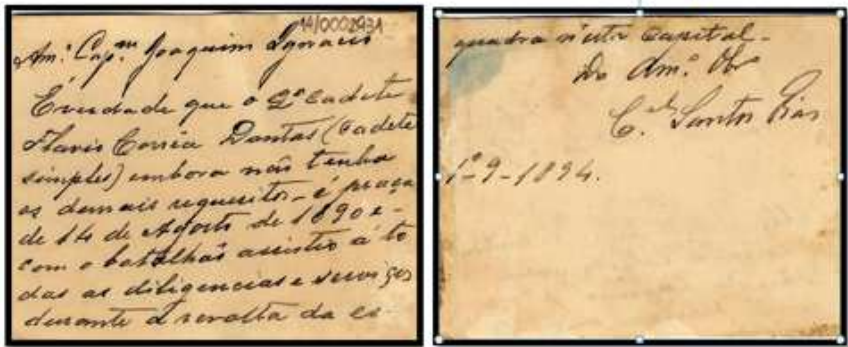 14/0002931
Am.º Cap.m Joaquim Ignacio
É verdade que o 2º Cadete
Flavio Corrêa Dantas (Cadete
simples) embora não tenha
os demais requesitos - é praça
de 14 de Agosto de 1890 e -
com o batalhão assistio à to
das as diligencias e serviços
durante a revolta da es
quadra n'esta Capital -
Do Am.º Obr
C.el Santos Dias
1º-9-1894.